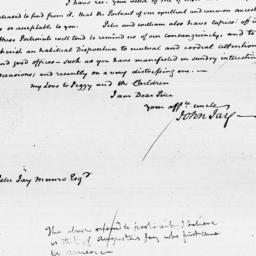 I have rec. your letter of the
pleased to find from it, that the Portrait of our mutual and common ancestor
is so acceptable to you. Peter and William also have copies of it
these Portraits will tend to remind us of our consanguinity, and to
cherish an habitual Disposition to mutual and cordial attentions
and good offices – such as you have manifested on sundry interesting
occasions; and recently on a very distressing one. —
my Love to Peggy and the Children
I am Dear Peter
your affte. uncle
John Jay
Peter Jay Munro Esqr.
The above refered to portrait I believe
is that of Augustus Jay who first came
to America